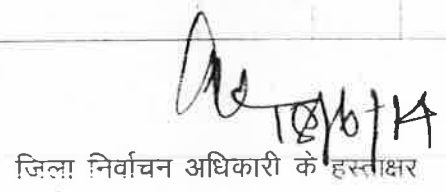 18/6/14
जिला निर्वाचन अधिकारी के हस्ताक्षर